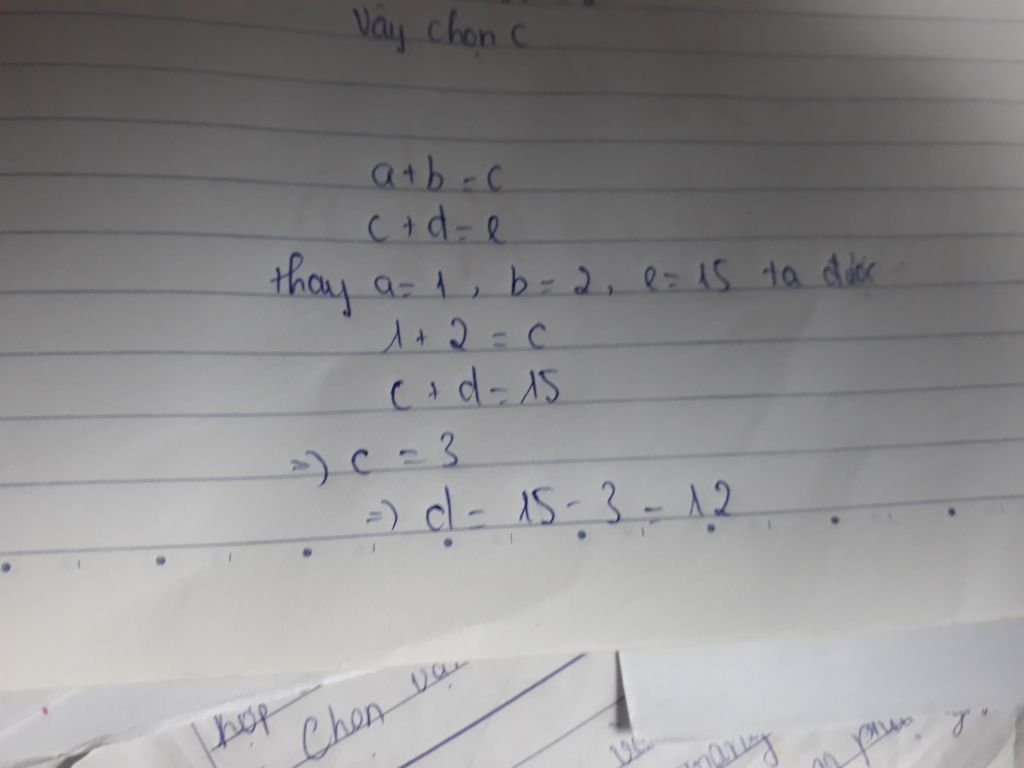 Vậy chọn c
a+b=c
c+d=e
thay a=1, b=2, e=15 ta được
1+2=c
c+d=15
=) c=3
=) d=15-3=12
hợp
Chọn vại